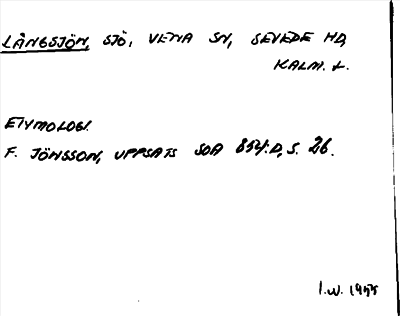 LÅNGSJÖN, SJÖ, VENA SN, SEVEDE HD,
KALM. L.
ETYMOLOGI.
F. JÖNSSON, UPPSATS SOA 854:D, S. 26.
I.W. 1955